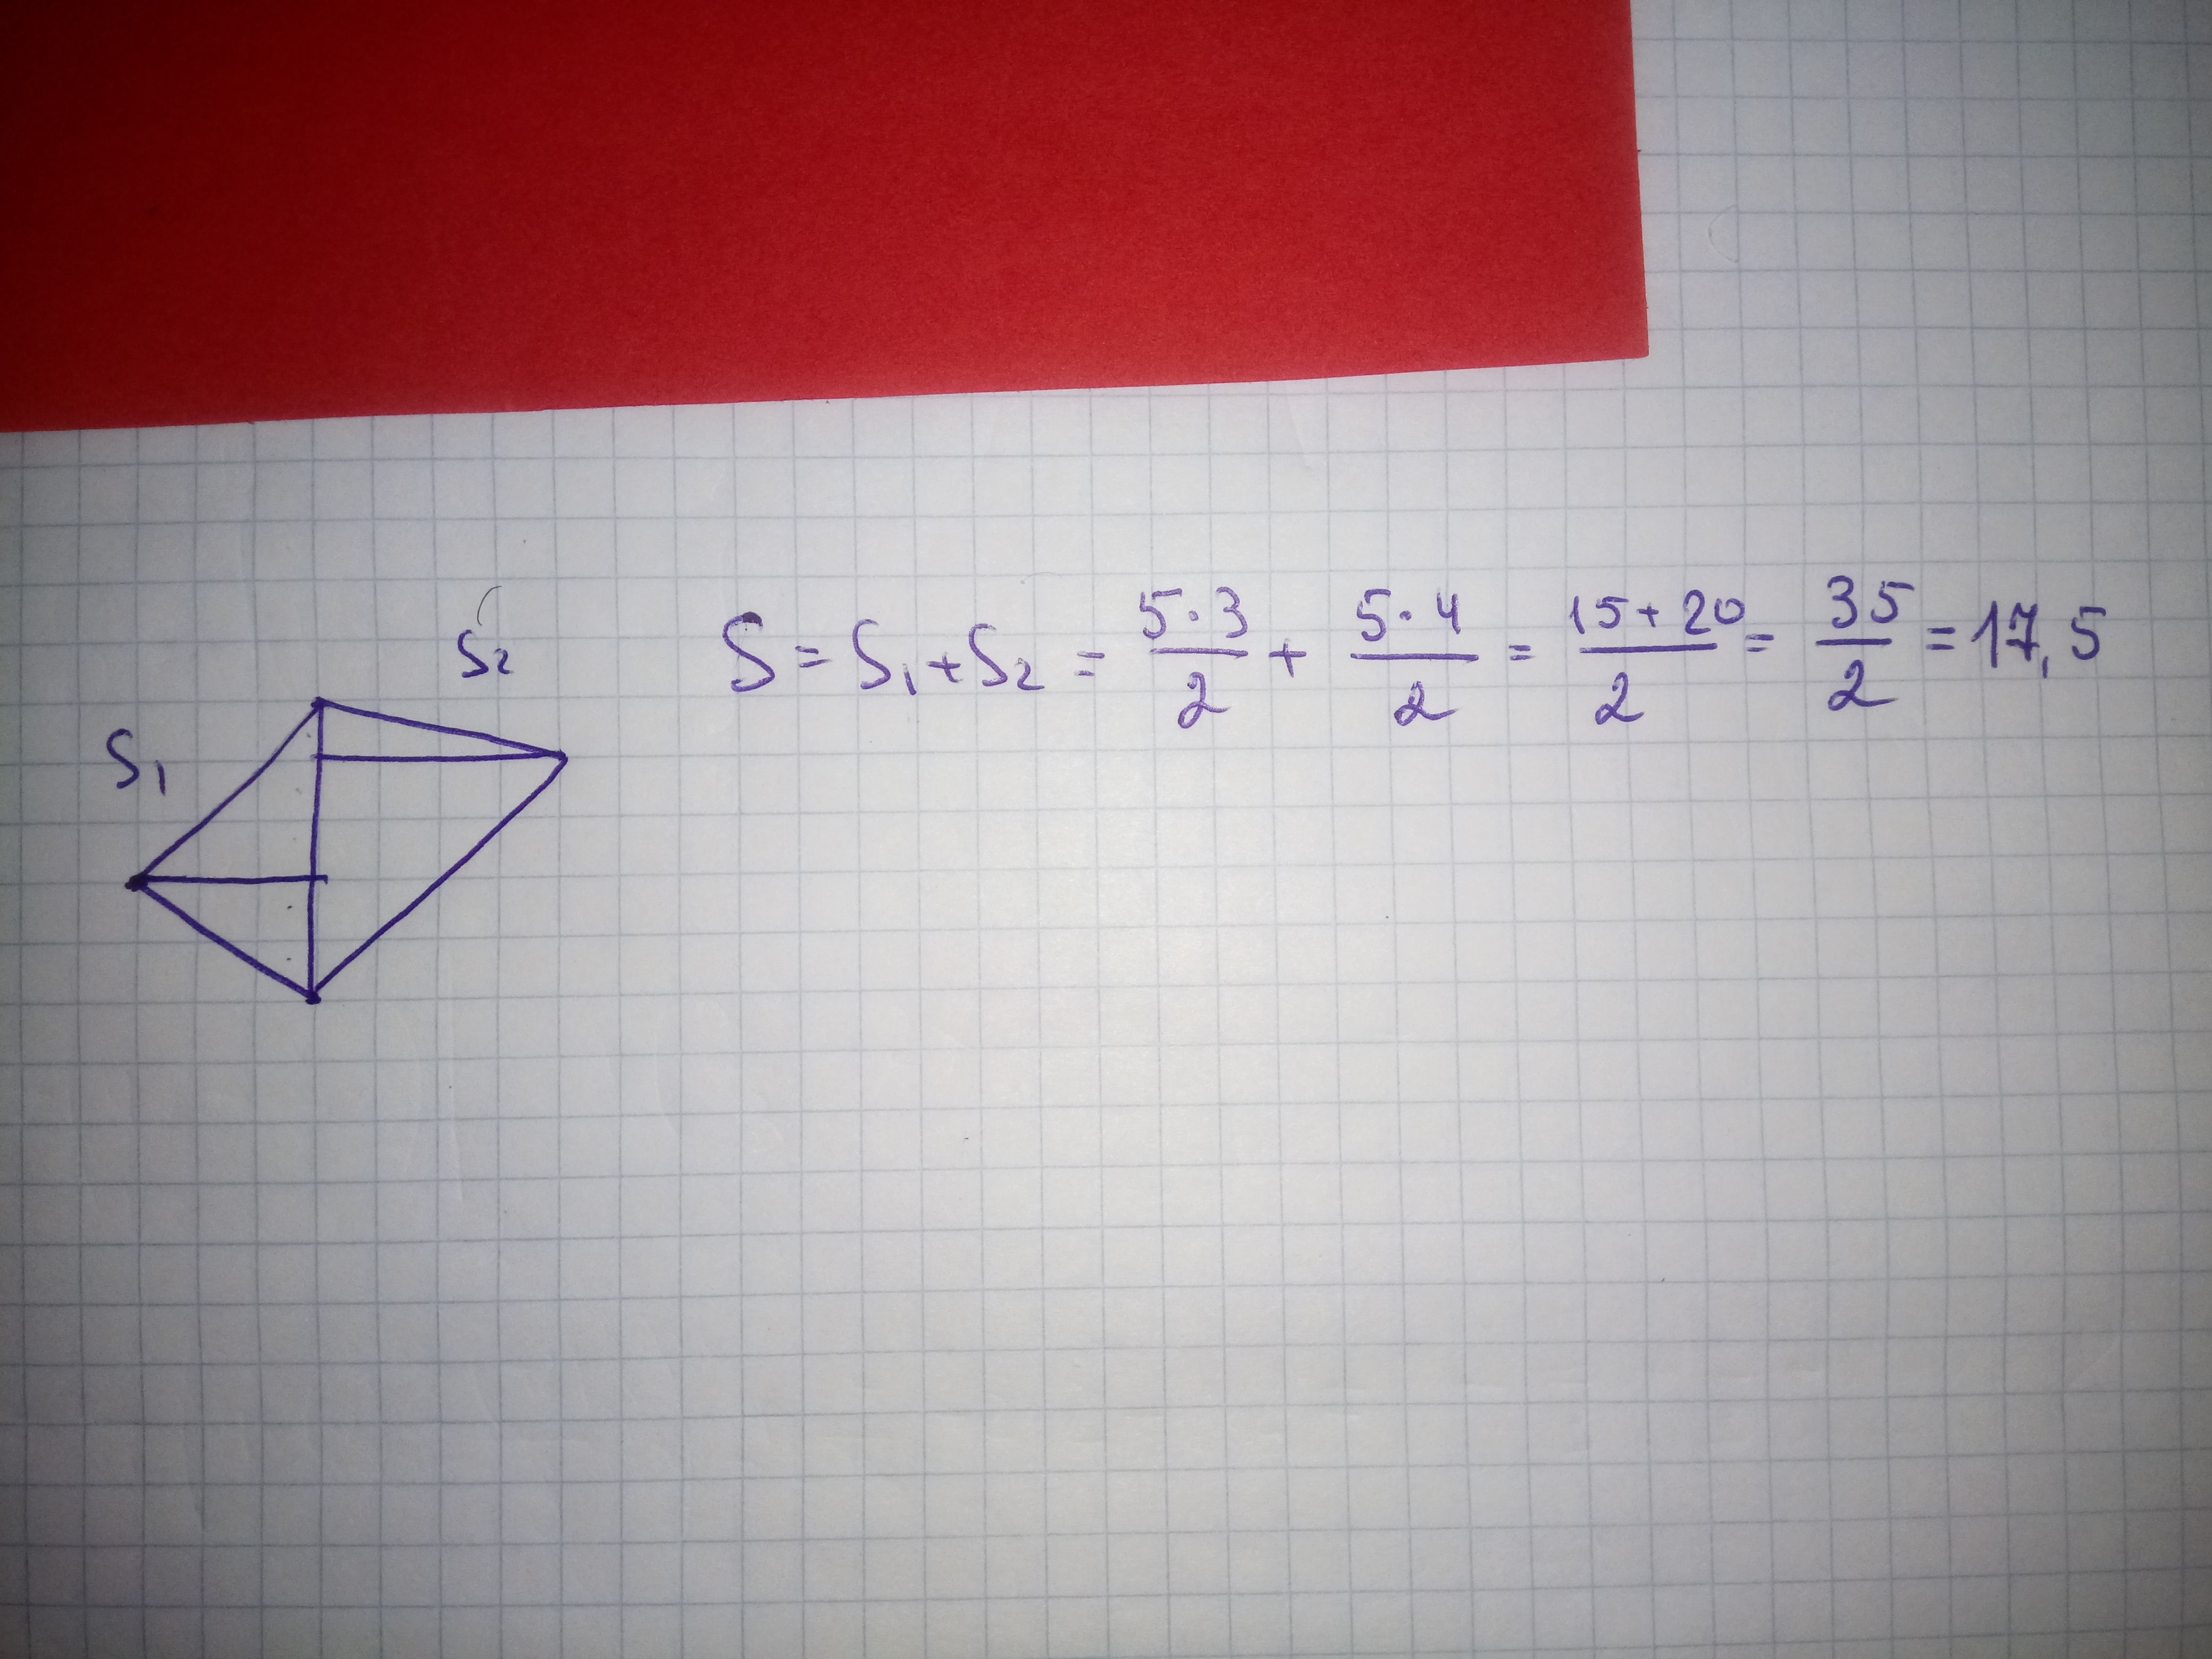 S₂
S = S₁ + S₂ = \frac{5·3}{2} + \frac{5·4}{2} = \frac{15+20}{2} = \frac{35}{2} = 17,5
S₁